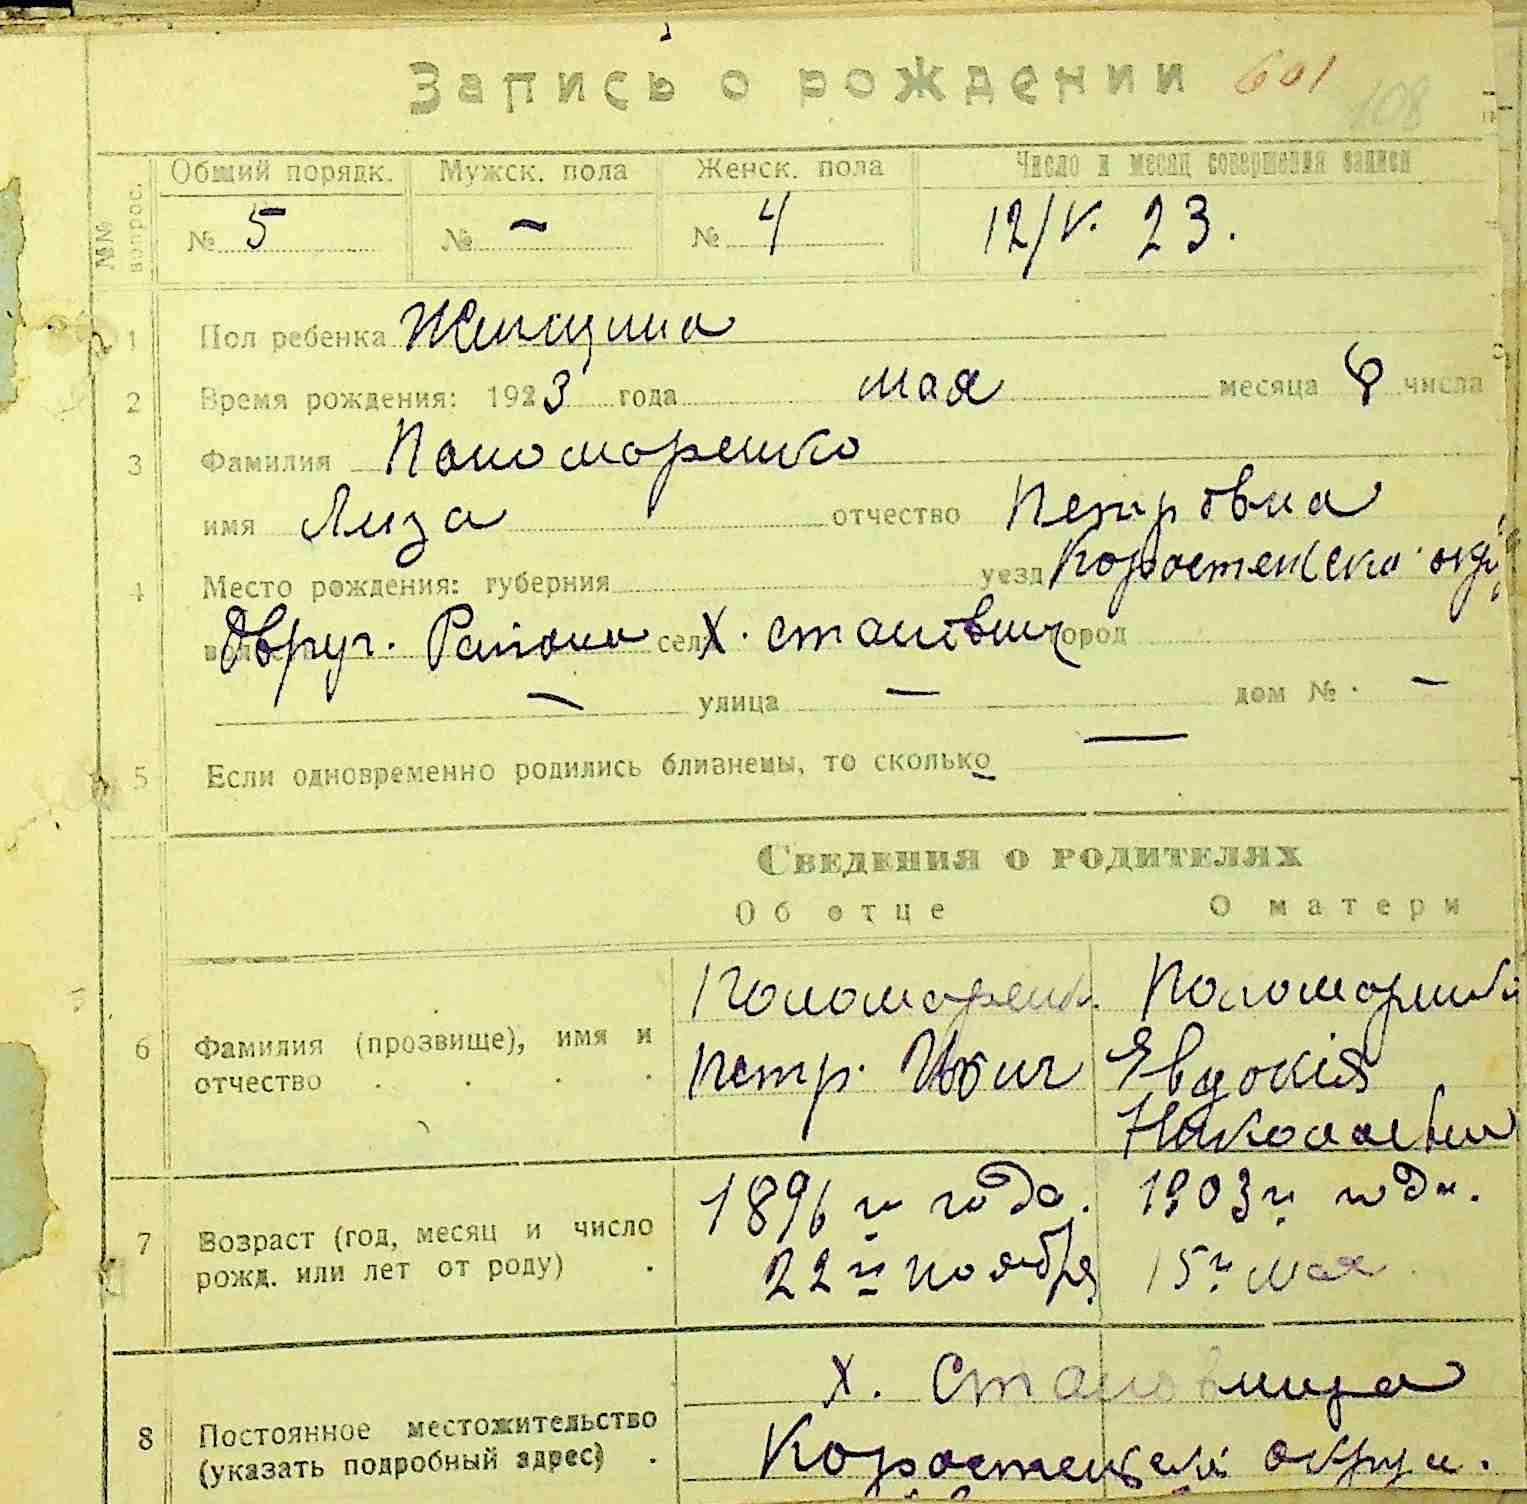 Запись о рождении 601 108
№№ вопрос. Общий порядк. Мужск. пола Женск. пола Число и месяц совершения записи
№ 5 № — № 4 12/V. 23.
1 Пол ребенка Женщина
2 Время рождения: 1923 года мая месяца 6 числа
3 Фамилия Пономоренко
имя Лиза отчество Петровна
4 Место рождения: губерния уезд Коростенско
Овруч. Района сел Х. город
— улица — дом № —
5 Если одновременно родились близнецы, то сколько —
Сведения о родителях
Об отце О матери
6 Фамилия (прозвище), имя и отчество
Пономоренк. Пономоренко
Петр. Евдокія
Николаевн
7 Возраст (год, месяц и число рожд. или лет от роду)
1896 го года. 1903 го
22 го ноября 15 го мая
8 Постоянное местожительство (указать подробный адрес)
Х. Становища
Коростенской округи.